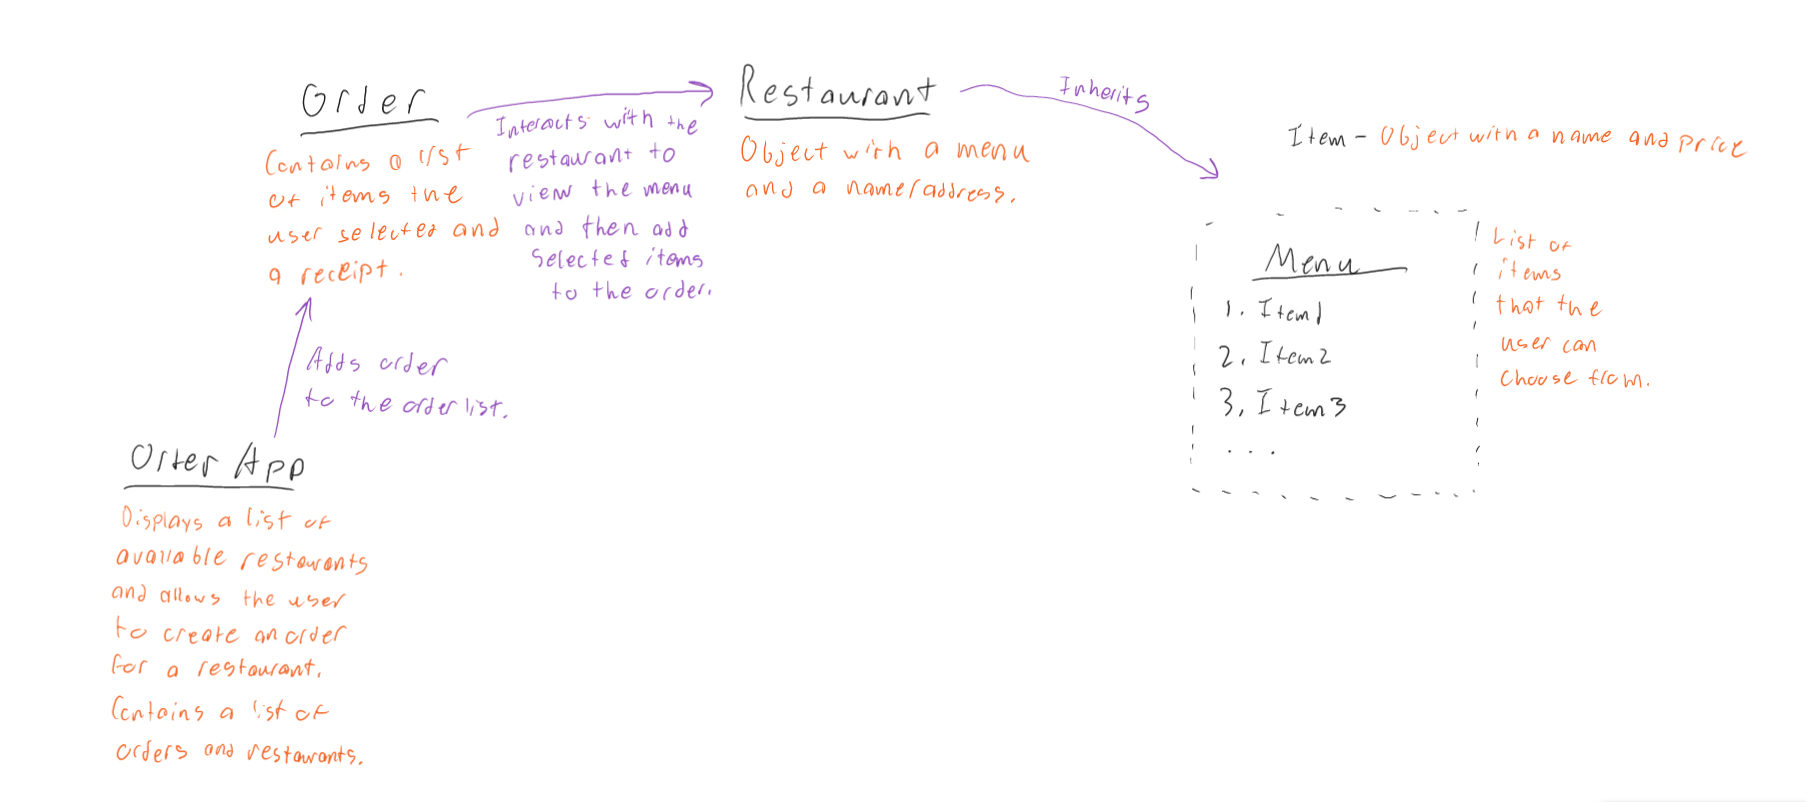 Order
Contains a list
of items the
user selected and
a receipt.
Interacts with the
restaurant to
view the menu
and then add
selected items
to the order.
Restaurant
Object with a menu
and a name/address.
Inherits
Item - Object with a name and price
Menu
1. Item1
2. Item2
3. Item3
...
List of
items
that the
user can
choose from.
Adds order
to the order list.
Order App
Displays a list of
available restaurants
and allows the user
to create an order
for a restaurant.
Contains a list of
orders and restaurants.